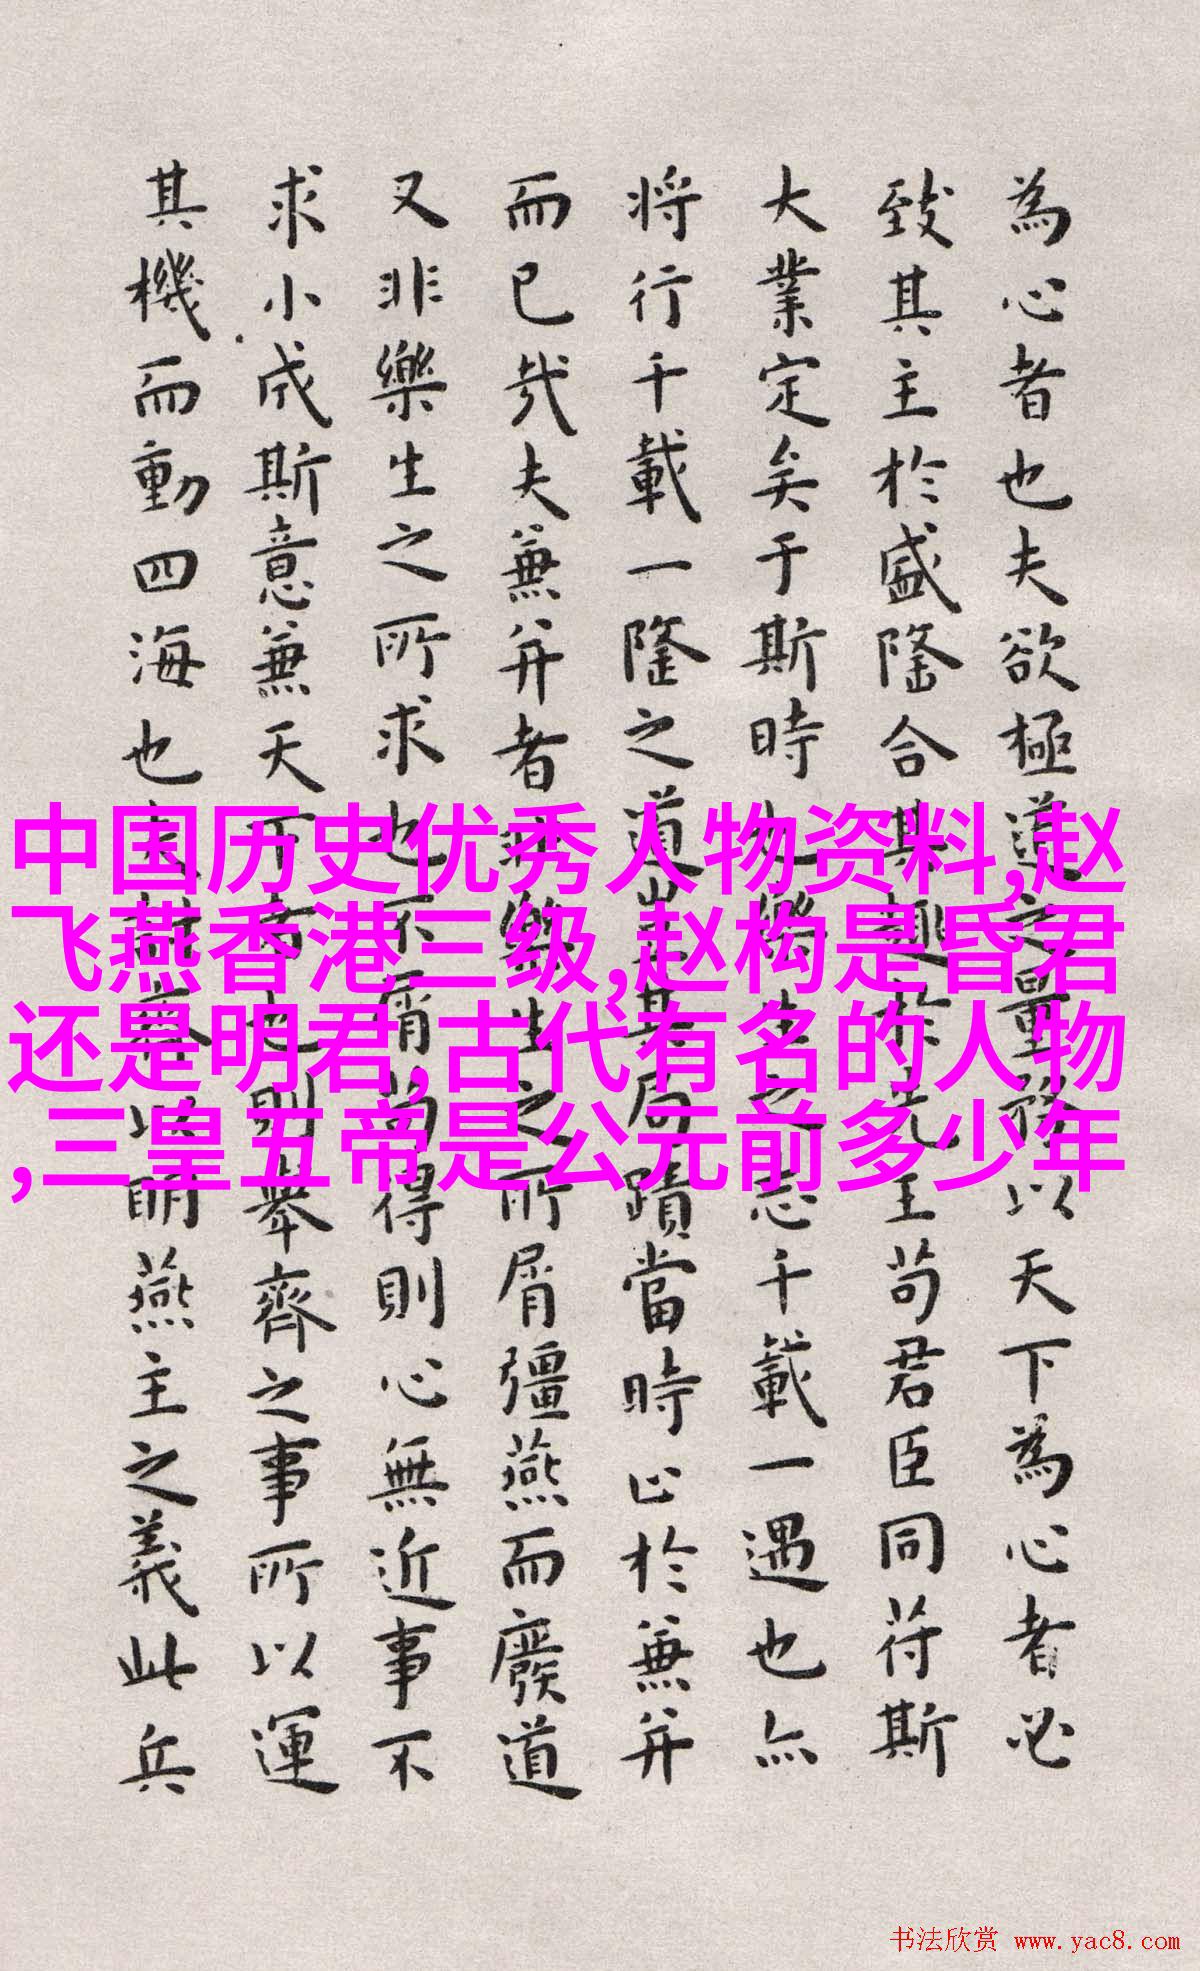 為心者也夫欲極道之量務以天下為心者必
致其主於盛隆合其趣於先王苟君臣同符斯
大業定矣于斯時也樂生之志千載一遇也亦
將行千載一隆之道豈其局蹟當時止於兼并
而已哉夫兼并者非樂生之所屑彊燕而廢道
又非樂生之所求也不屑苟得則心無近事不
求小成斯意兼天下者也則舉齊之事所以運
其機而動四海也夫討齊以明燕主之義此兵
中国历史优秀人物资料,赵
飞燕香港三级,赵构是昏君
还是明君,古代有名的人物
,三皇五帝是公元前多少年
书法欣赏 www.yac8.com